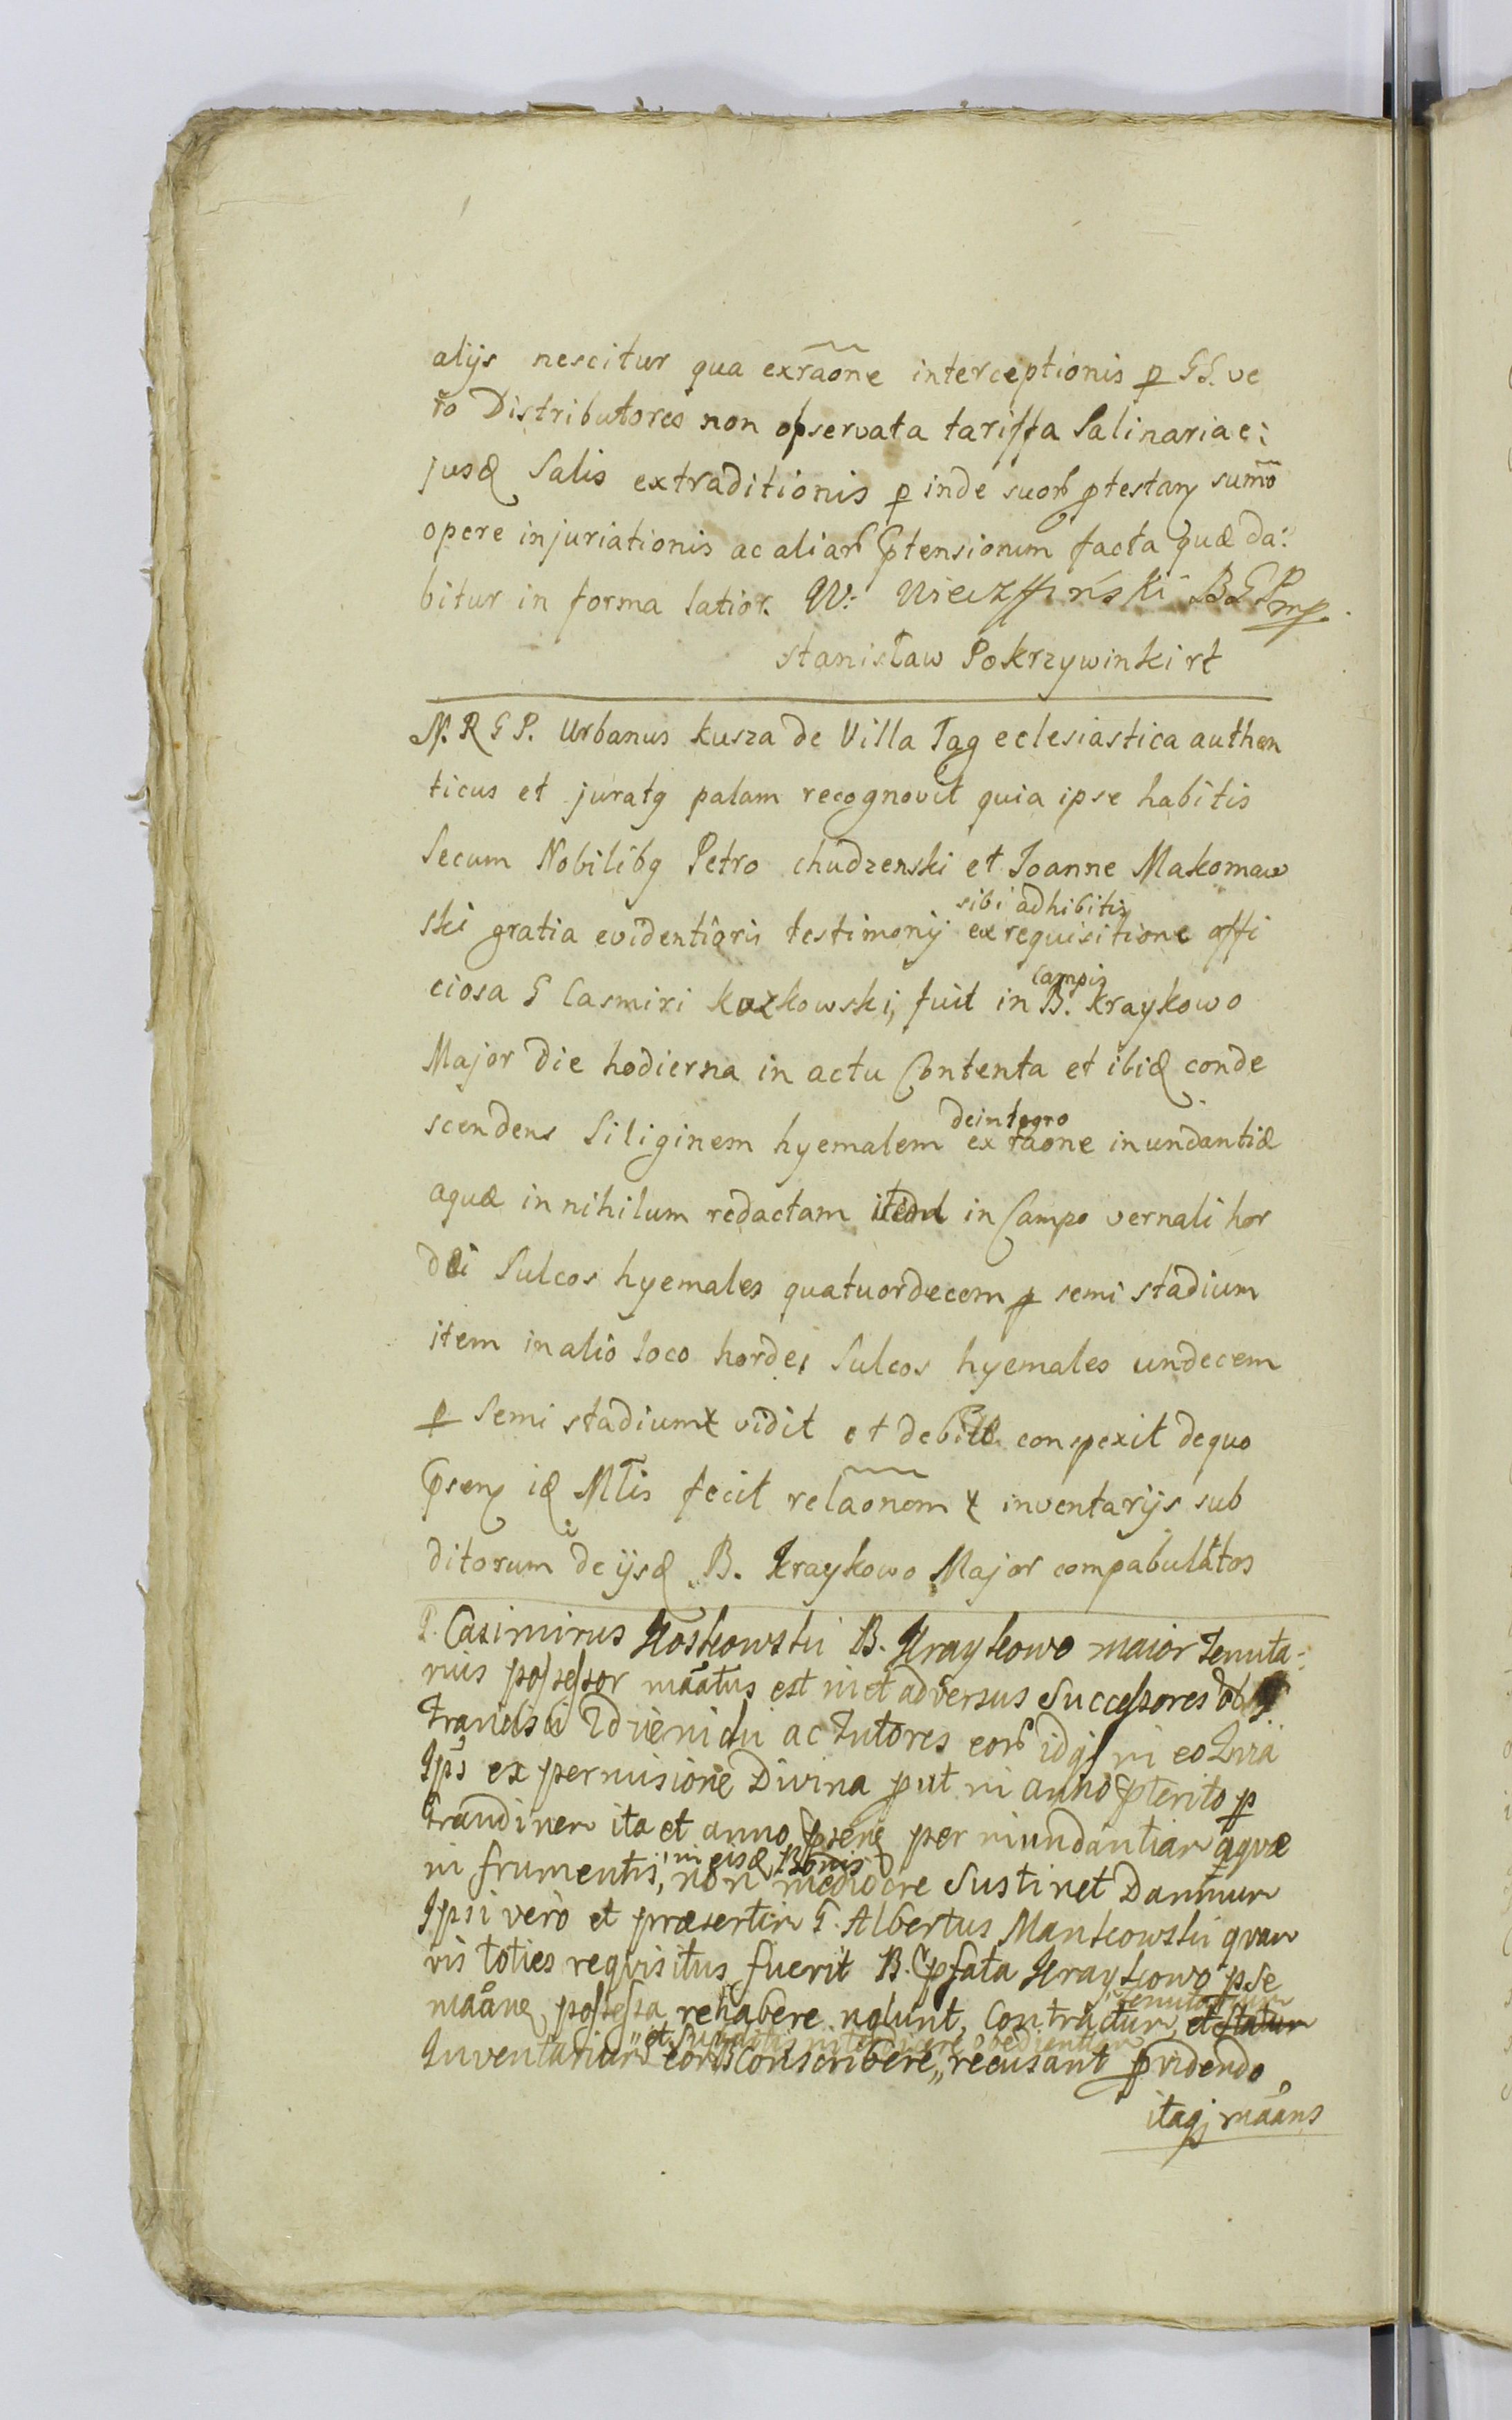 alijs nescitur qua exraone interceptionis p GG. ve
ro Distributores non observata tariffa Salinaria e:
jusq Salis extraditionis p inde suor ptestary sumo
opere injuriationis ac aliar ptensionum facta quæ da:
bitur in forma latior. W: BGP mp.
stanisław Pokrzywinki rt
M. R G P. Urbanus kusza de Villa Tag eclesiastica authen
ticus et juratg palam recognovit quia ipse habitis
Secum Nobilibg Petro chudzenski et Joanne Makomaw
sibi adhibitis
ski gratia evidentioris testimonij ex requisitione offi
campis
ciosa G Casmiri kozkowski, fuit in B. kraykowo
Major die hodierna in actu Contenta et ibiq conde
deintegro
scendens Siliginem hyemalem ex raone inundantiæ
aquæ in nihilum redactam item in Campo vernali hor
dei Sulcos hyemales quatuordecem p semi stadium
item in alio loco hordei Sulcos hyemales undecem
p Semi stadium vidit et debite conspexit dequo
psens iq Mtis fecit relaonem inventarijs sub
ditorum de ijsq B. Kraykowo Major compabulatos
G. Casimirus Koskowski B. Kraykowo maior Tenuta:
rius possessor maatus est in et adversus Successores
ac Tutores eor idq in eo Quia
Ips ex permisione Divina put in anno pterito p
Grandinem ita et anno psens per inundantiam aqvæ
in eisq Bonis
in frumentis, non mediocre Sustinet Damnum
Ipsi vero et præsertim G. Albertus Mankowski qvam
vis toties reqvisitus fuerit B. pfata Kraykowo pse
Tenutarium
maane possessa rehabere nolunt, Contractum, et statum
et Subditis interdicere obedientiam
Inventarium eor B Conscribere, recusant pvidendo
itaq maans